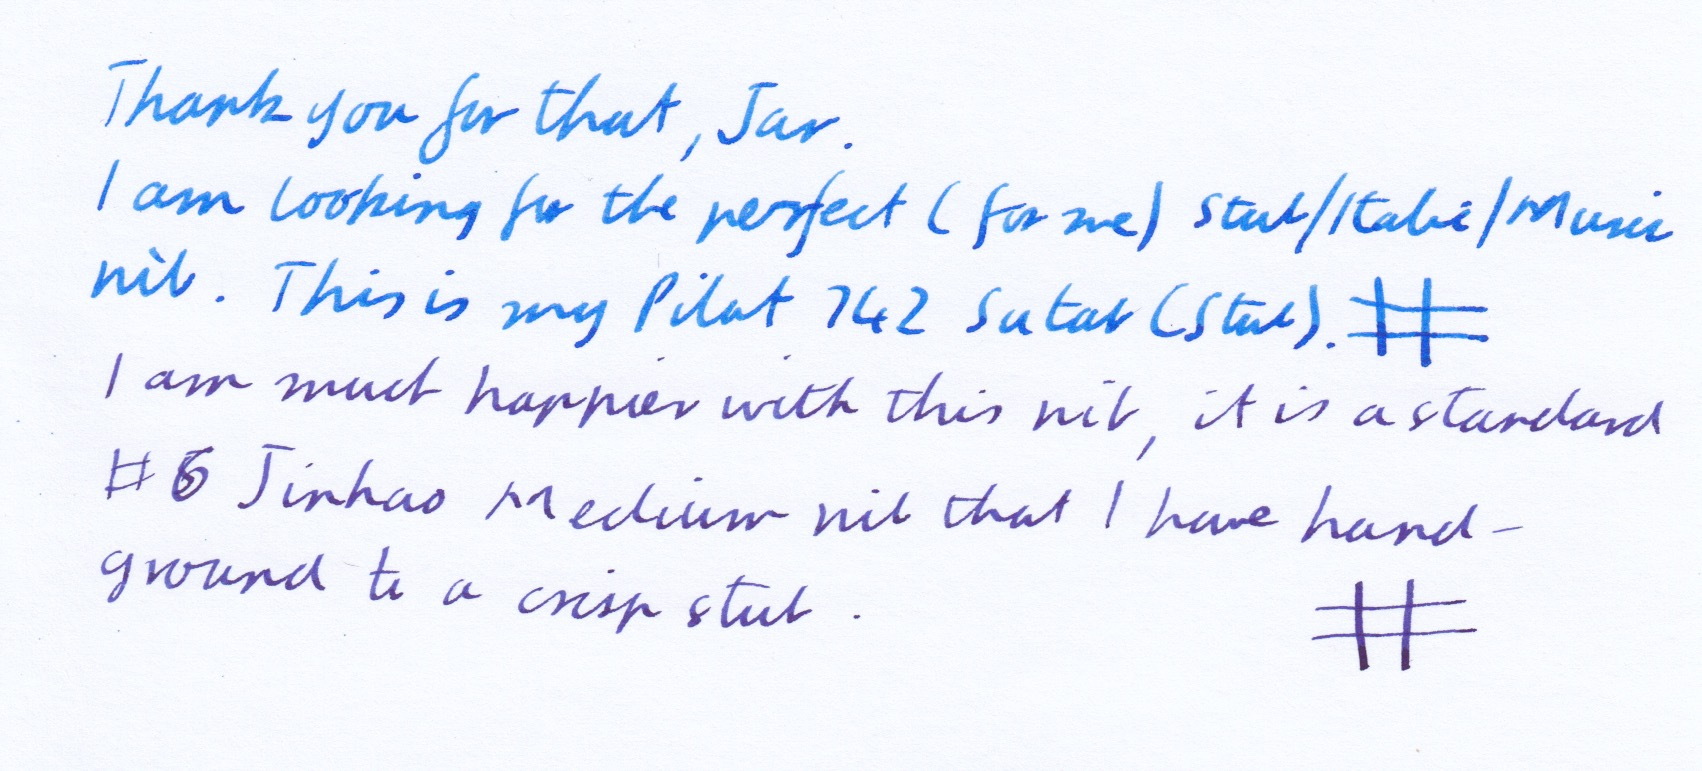 Thank you for that, Jar.
I am looking for the perfect (for me) stub/Italic/Music
nib. This is my Pilot 742 Sutab (Stub). #
I am much happier with this nib, it is a standard
#6 Jinhao Medium nib that I have hand-
ground to a crisp stub. #